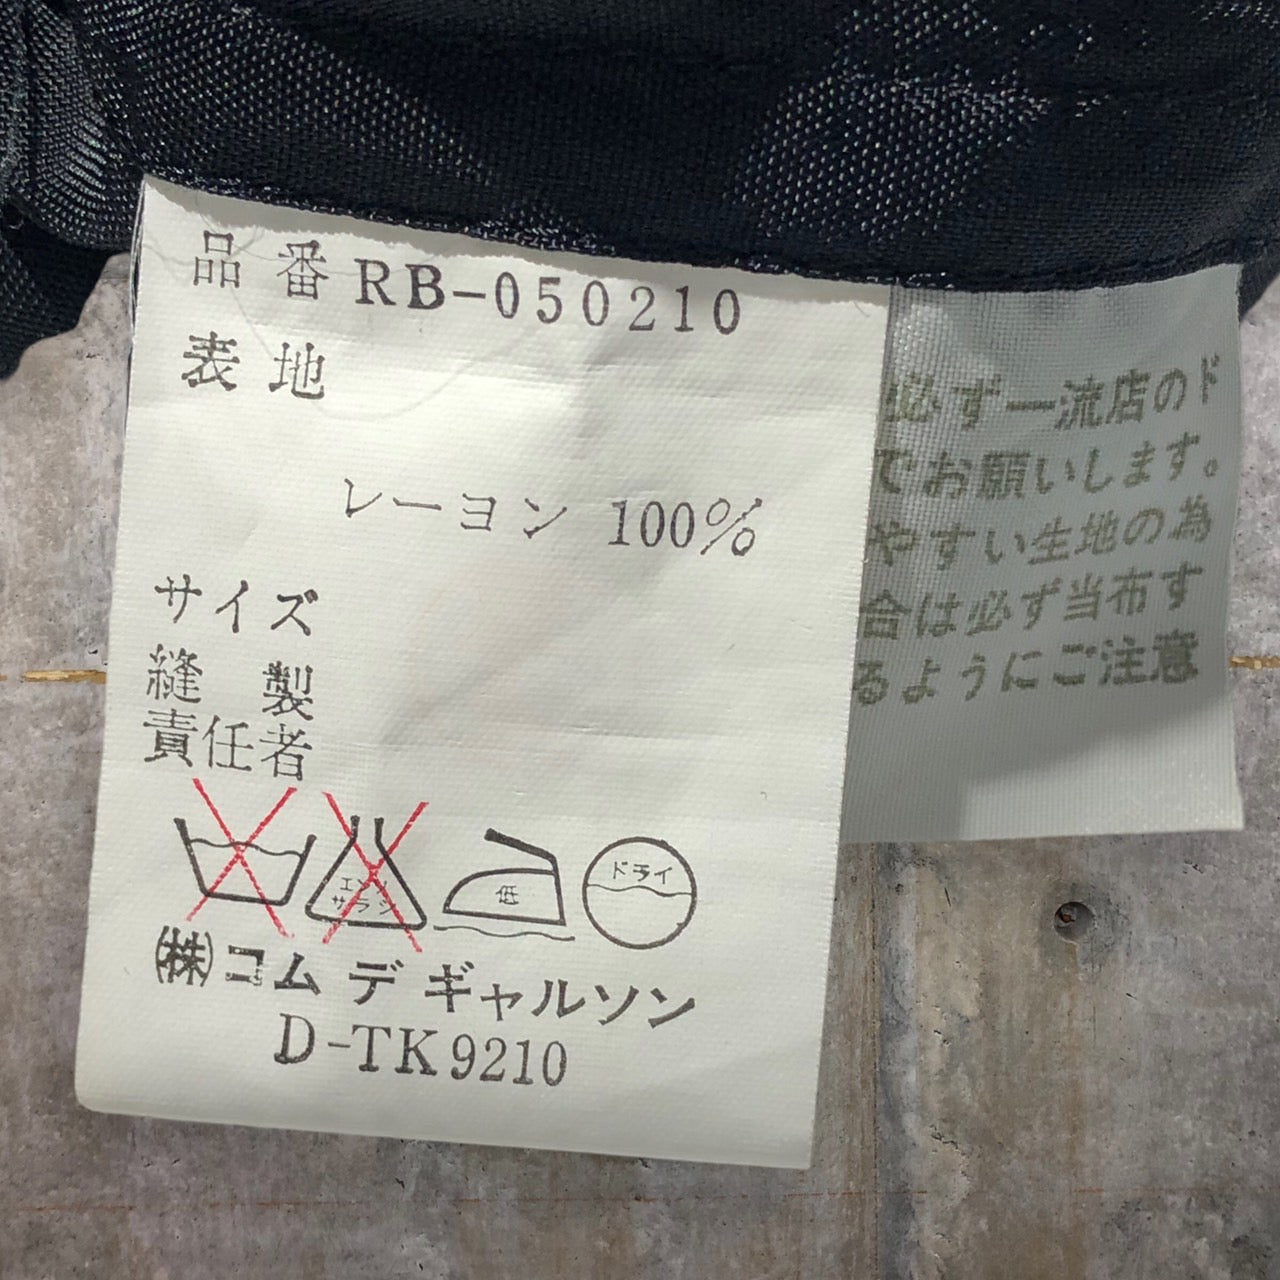 品番 RB-050210
表地
レーヨン 100%
サイズ
縫製
責任者
エンソ
サラシ
低
ドライ
(株)コム デ ギャルソン
D-TK9210
必ず一流店のド
でお願いします。
やすい生地の為
合は必ず当布す
るようにご注意